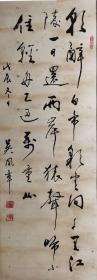 朝辭白帝彩雲間千里江
陵一日還兩岸猿聲啼不
住輕舟已過萬重山
戊辰冬